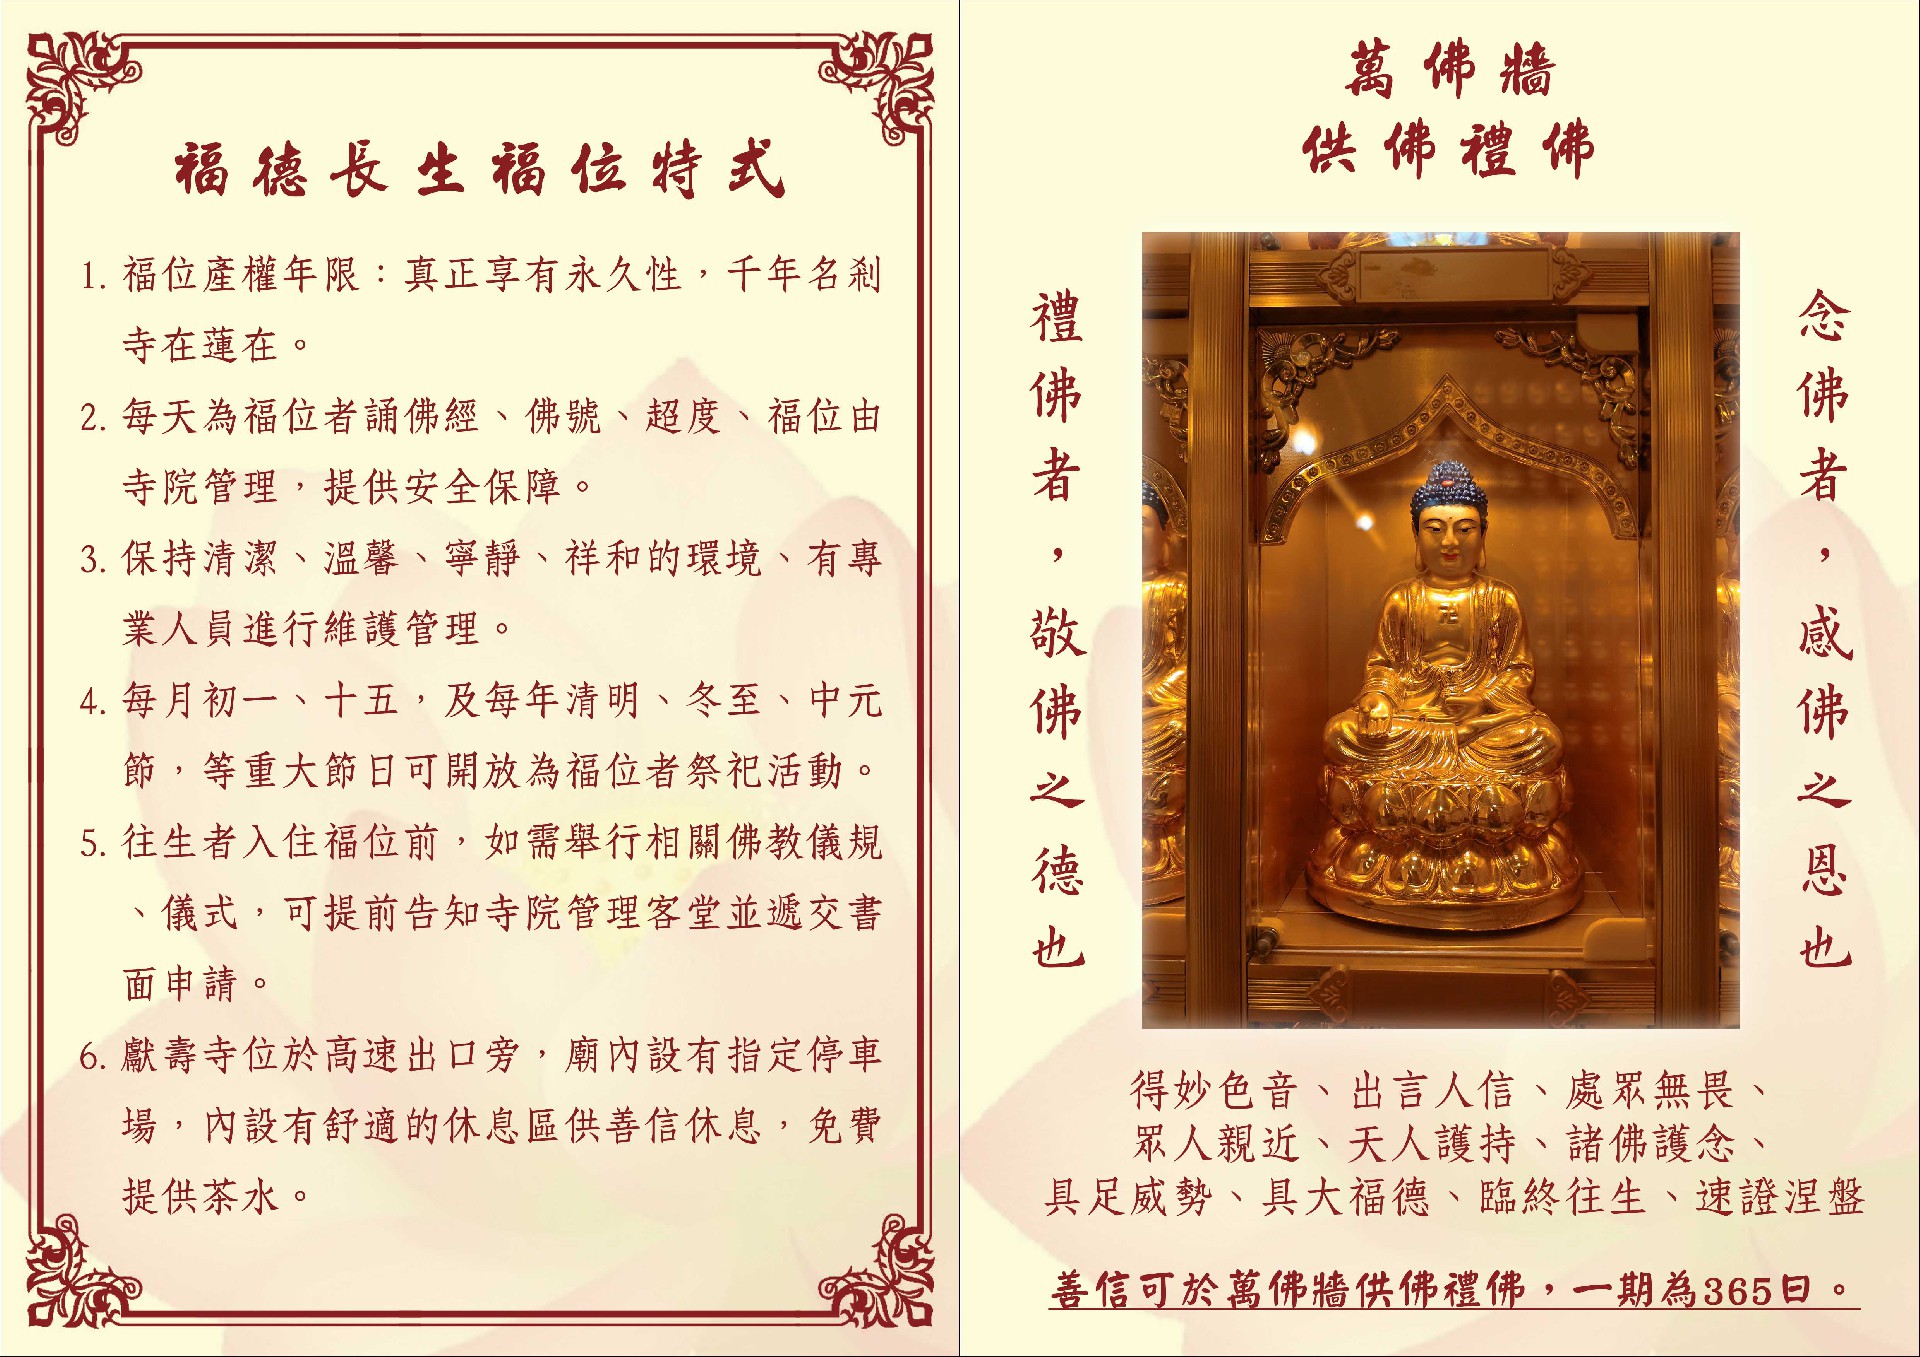 福德長生福位特式
1. 福位產權年限：真正享有永久性，千年名剎
寺在蓮在。
2. 每天為福位者誦佛經、佛號、超度、福位由
寺院管理，提供安全保障。
3. 保持清潔、溫馨、寧靜、祥和的環境、有專
業人員進行維護管理。
4. 每月初一、十五，及每年清明、冬至、中元
節，等重大節日可開放為福位者祭祀活動。
5. 往生者入住福位前，如需舉行相關佛教儀規
、儀式，可提前告知寺院管理客堂並遞交書
面申請。
6. 獻壽寺位於高速出口旁，廟內設有指定停車
場，內設有舒適的休息區供善信休息，免費
提供茶水。
萬佛牆
供佛禮佛
念佛者，感佛之恩也
禮佛者，敬佛之德也
卍
得妙色音、出言人信、處眾無畏、
眾人親近、天人護持、諸佛護念、
具足威勢、具大福德、臨終往生、速證涅盤
善信可於萬佛牆供佛禮佛，一期為365日。